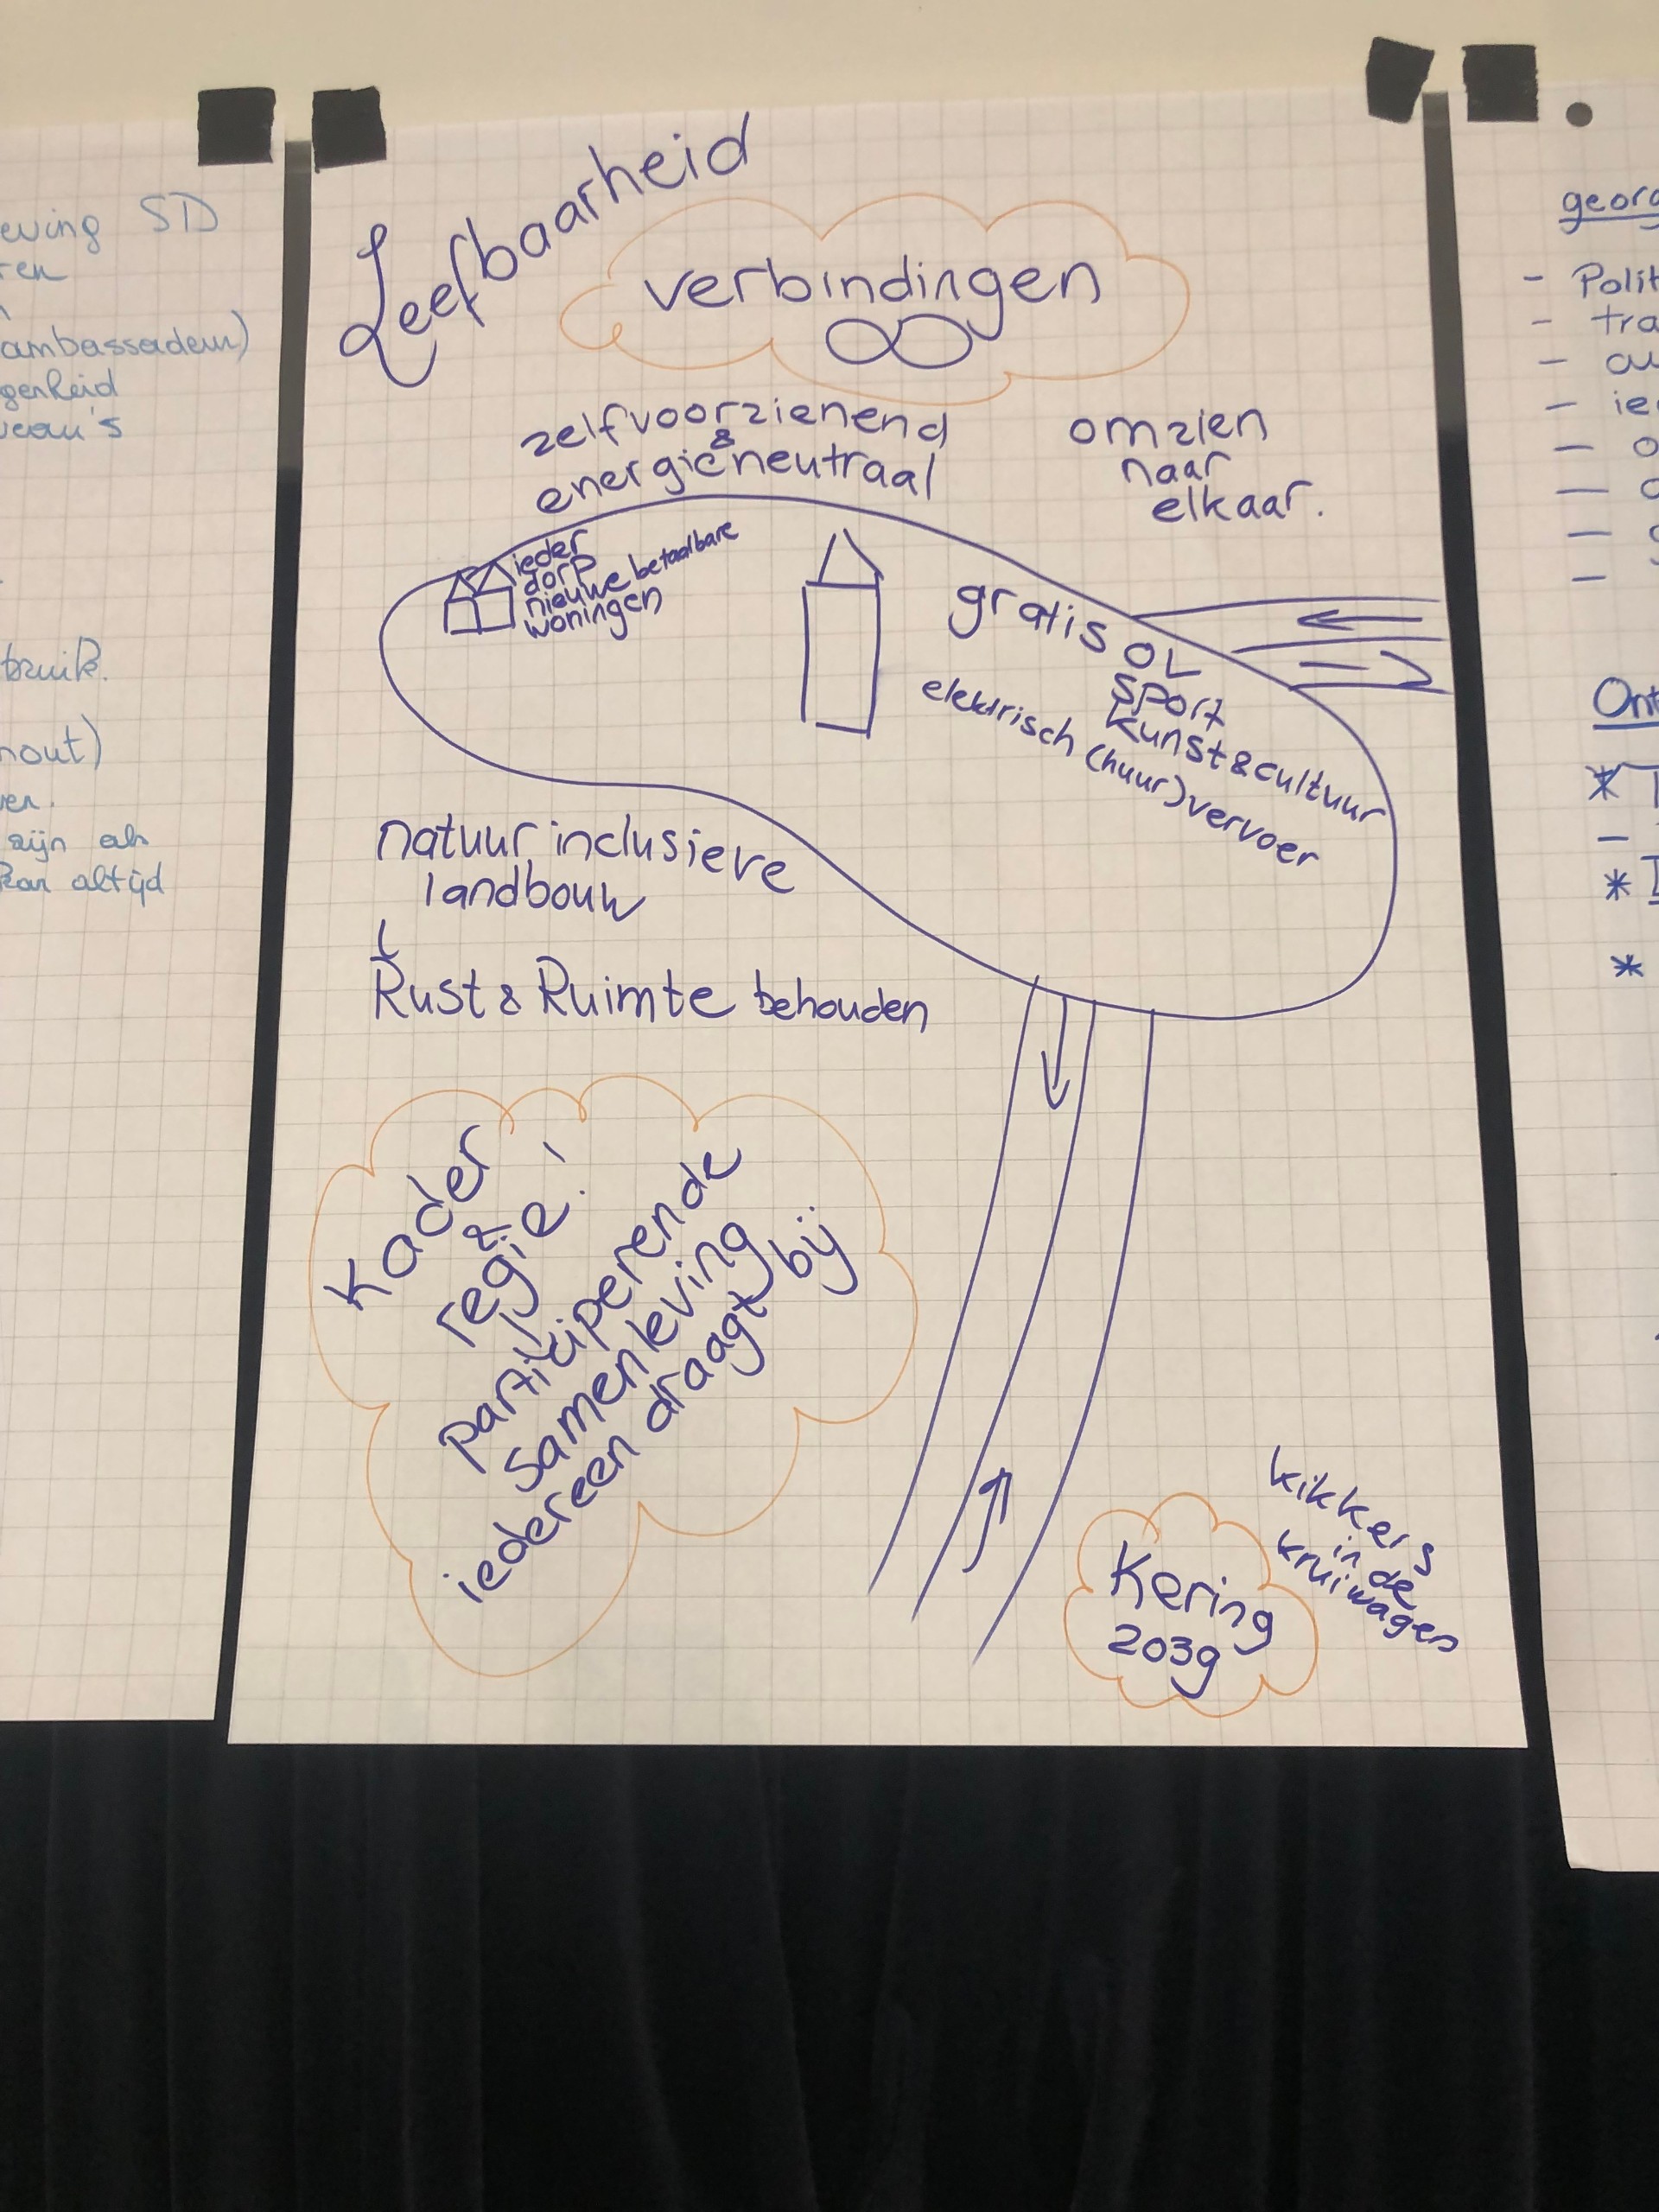 Leefbaarheid
verbindingen
zelfvoorzienend
&
energieneutraal
omzien
naar
elkaar.
ieder
dorp
nieuwe betaalbare
woningen
gratis OV
sport
kunst & cultuur
elektrisch (huur) vervoer
natuur inclusieve
landbouw
Rust & Ruimte behouden
Kader
&
regie!
participerende
samenleving
iedereen draagt bij
Kering
2039
kikkers
in de
kruiwagen
eving SD
ren
ambassadeur)
genheid
veau's
bruik.
hout)
ver.
zijn als
kan altijd
georg
- Polit
- tra
- au
- ie
- o
Ont
*
-
*
*